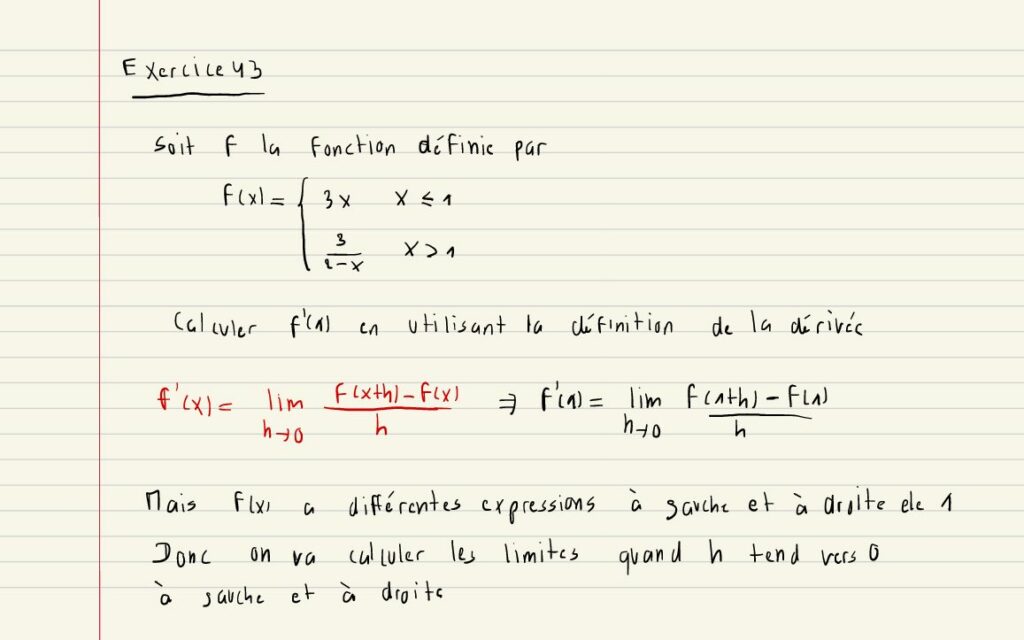 Exercice 43
Soit f la fonction définie par
f(x) = { 3x x ≤ 1
3/(2-x) x > 1
Calculer f'(1) en utilisant la définition de la dérivée
f'(x) = lim h→0 (f(x+h) - f(x))/h ⇒ f'(1) = lim h→0 (f(1+h) - f(1))/h
Mais f(x) a différentes expressions à gauche et à droite de 1
Donc on va calculer les limites quand h tend vers 0
à gauche et à droite